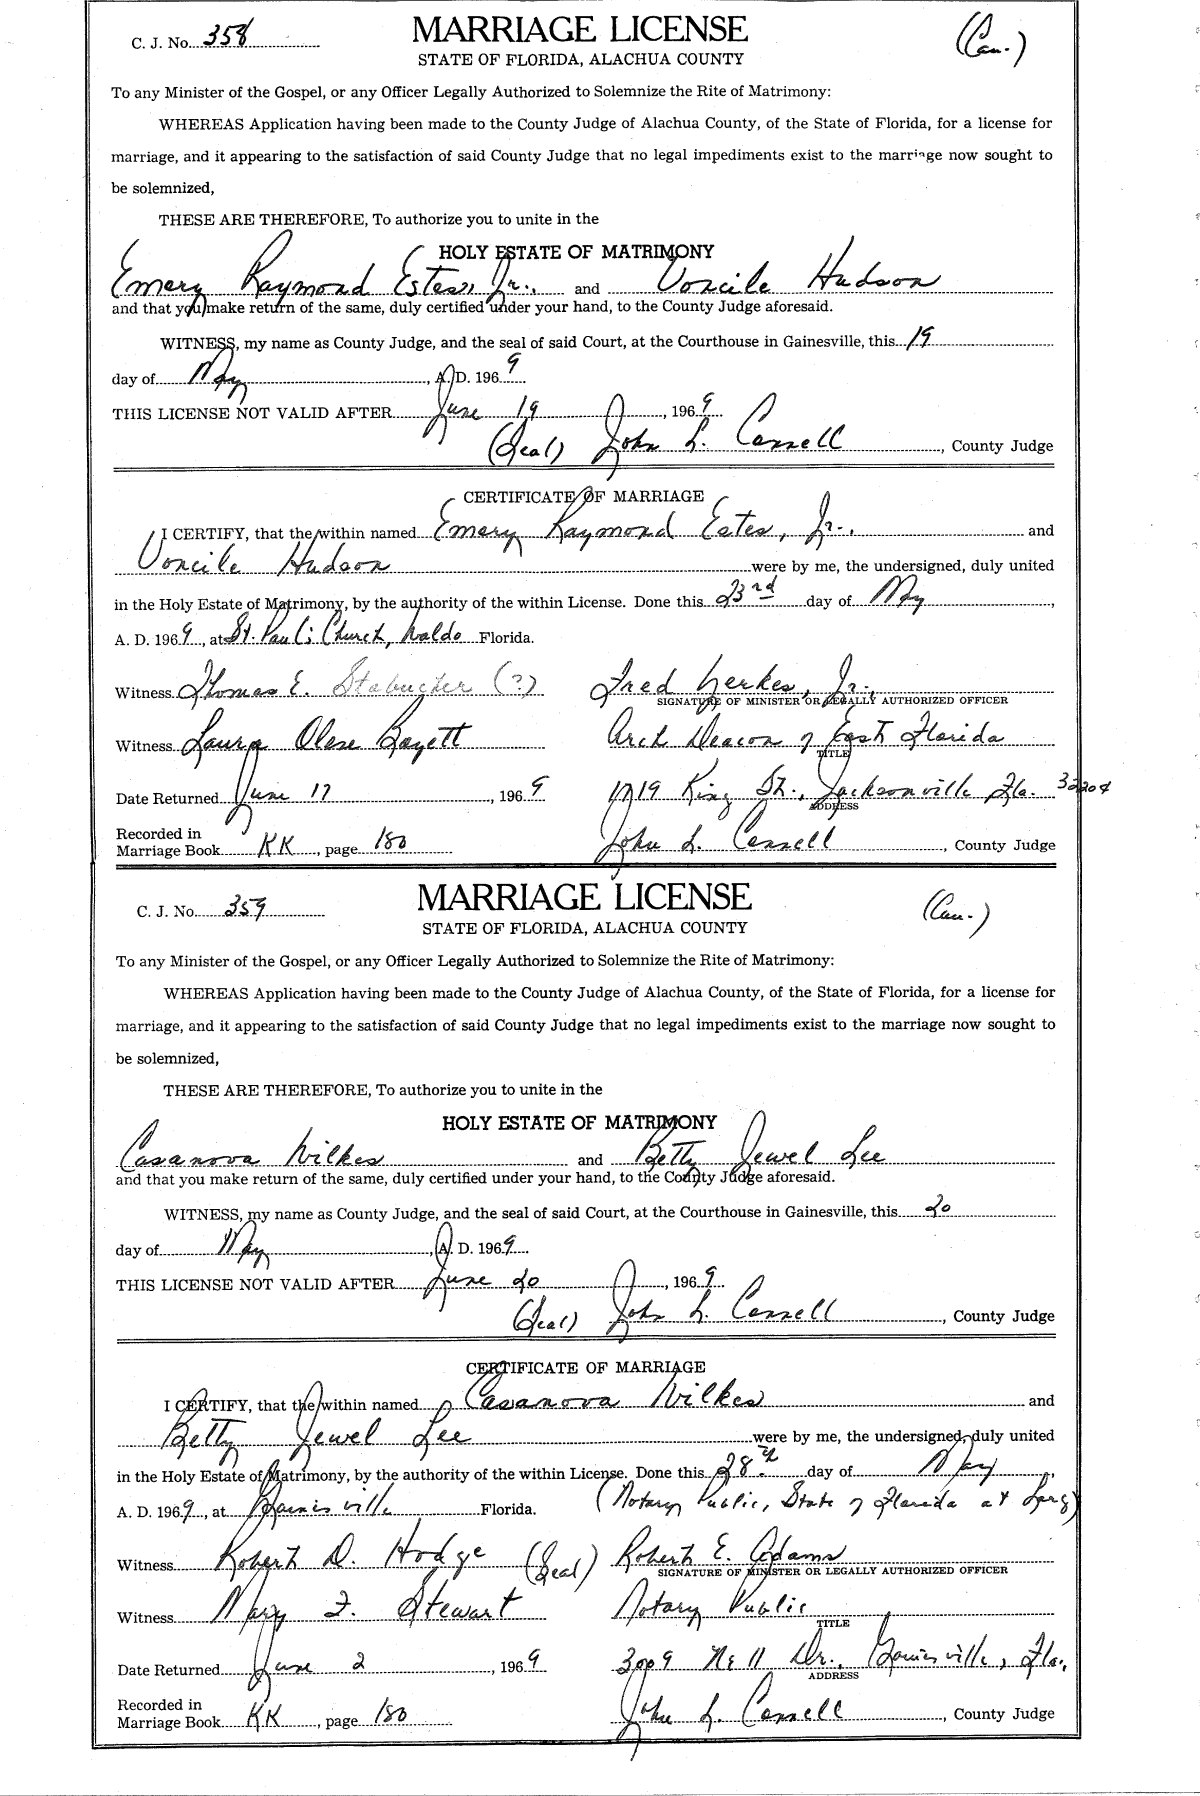 C. J. No. 358
MARRIAGE LICENSE
(Cau.)
STATE OF FLORIDA, ALACHUA COUNTY
To any Minister of the Gospel, or any Officer Legally Authorized to Solemnize the Rite of Matrimony:
WHEREAS Application having been made to the County Judge of Alachua County, of the State of Florida, for a license for
marriage, and it appearing to the satisfaction of said County Judge that no legal impediments exist to the marriage now sought to
be solemnized,
THESE ARE THEREFORE, To authorize you to unite in the
HOLY ESTATE OF MATRIMONY
Emery Raymond Estes, Jr., and Voncile Hudson
and that you make return of the same, duly certified under your hand, to the County Judge aforesaid.
WITNESS, my name as County Judge, and the seal of said Court, at the Courthouse in Gainesville, this 19
day of May, A. D. 1969
THIS LICENSE NOT VALID AFTER June 19, 1969
(Seal) John L. Connell, County Judge
CERTIFICATE OF MARRIAGE
I CERTIFY, that the within named Emery Raymond Estes, Jr., and
Voncile Hudson were by me, the undersigned, duly united
in the Holy Estate of Matrimony, by the authority of the within License. Done this 23rd day of May,
A. D. 1969, at St. Paul's Church, Waldo Florida.
Witness Thomas E. Stabucker (?) Fred Yerkes, Jr.,
SIGNATURE OF MINISTER OR LEGALLY AUTHORIZED OFFICER
Witness Laura Olese Arch Deacon of East Florida
TITLE
Date Returned June 17, 1969 1719 King St., Jacksonville Fla. 32204
ADDRESS
Recorded in
Marriage Book KK, page 180 John L. Connell, County Judge
C. J. No. 359
MARRIAGE LICENSE
(Cau.)
STATE OF FLORIDA, ALACHUA COUNTY
To any Minister of the Gospel, or any Officer Legally Authorized to Solemnize the Rite of Matrimony:
WHEREAS Application having been made to the County Judge of Alachua County, of the State of Florida, for a license for
marriage, and it appearing to the satisfaction of said County Judge that no legal impediments exist to the marriage now sought to
be solemnized,
THESE ARE THEREFORE, To authorize you to unite in the
HOLY ESTATE OF MATRIMONY
Casanova Wilkes and Betty Jewel Lee
and that you make return of the same, duly certified under your hand, to the County Judge aforesaid.
WITNESS, my name as County Judge, and the seal of said Court, at the Courthouse in Gainesville, this 20
day of May, A. D. 1969
THIS LICENSE NOT VALID AFTER June 20, 1969
(Seal) John L. Connell, County Judge
CERTIFICATE OF MARRIAGE
I CERTIFY, that the within named Casanova Wilkes and
Betty Jewel Lee were by me, the undersigned, duly united
in the Holy Estate of Matrimony, by the authority of the within License. Done this 28th day of May,
A. D. 1969, at Gainesville Florida. (Notary Public, State of Florida at Larg)
Witness Robert D. Hodge (Seal) Robert E. Adams
SIGNATURE OF MINISTER OR LEGALLY AUTHORIZED OFFICER
Witness Mary F. Stewart Notary Public
TITLE
Date Returned June 2, 1969 3009 NE 11 Dr., Gainesville, Fla.,
ADDRESS
Recorded in
Marriage Book KK, page 180 John L. Connell, County Judge